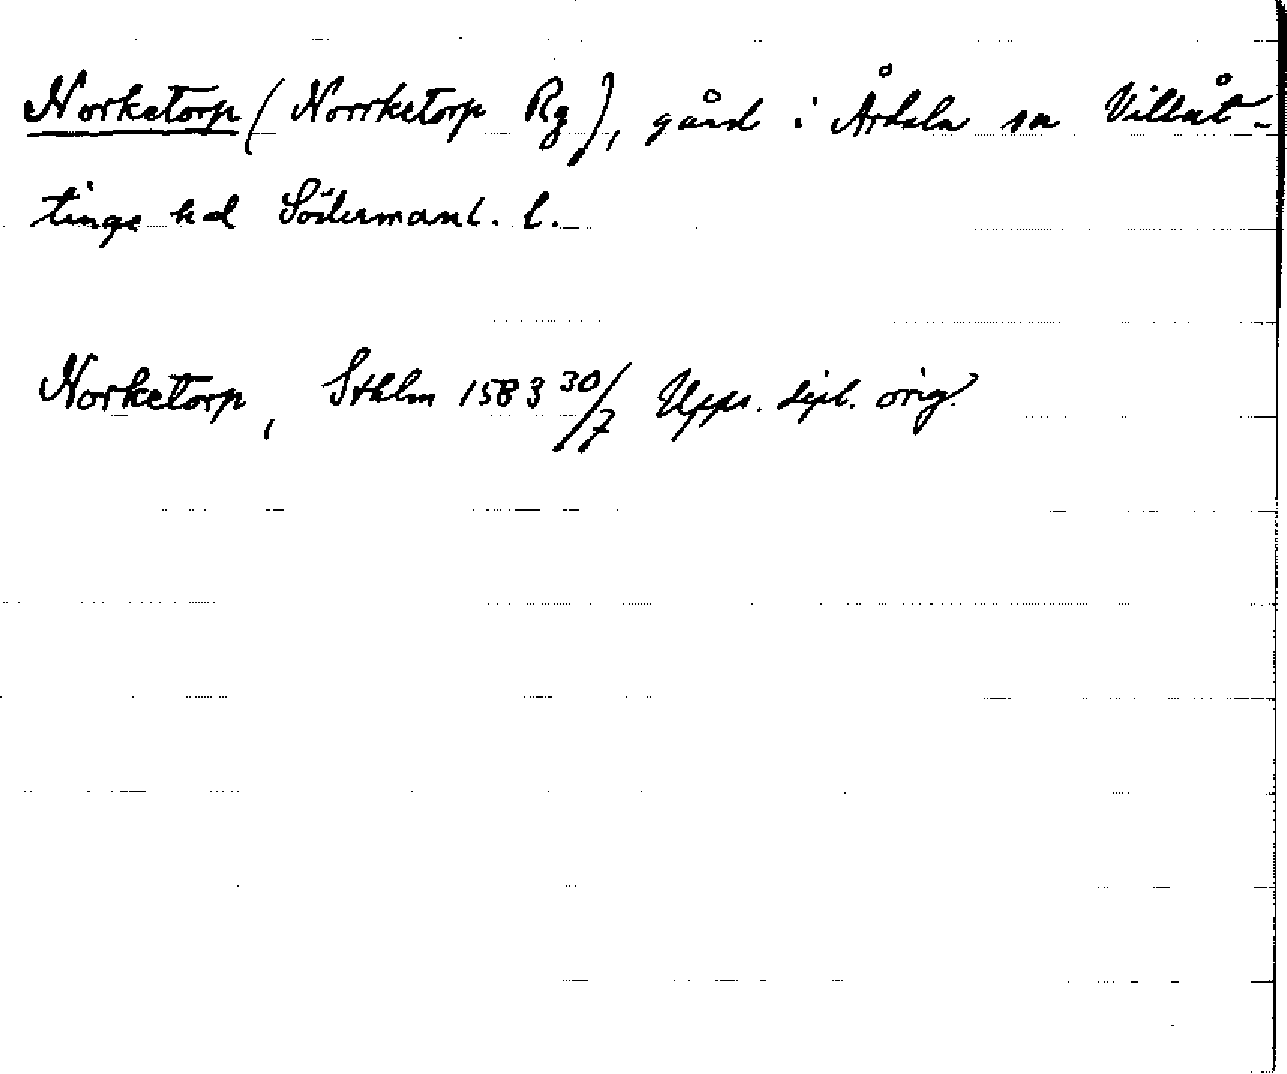 Norketorp (Norrketorp Rg), gård i Årdala sn Villåt-
tinge hd Södermanl. l.
Norketorp, Sthlm 1583 30/7 Upps. dipl. orig.